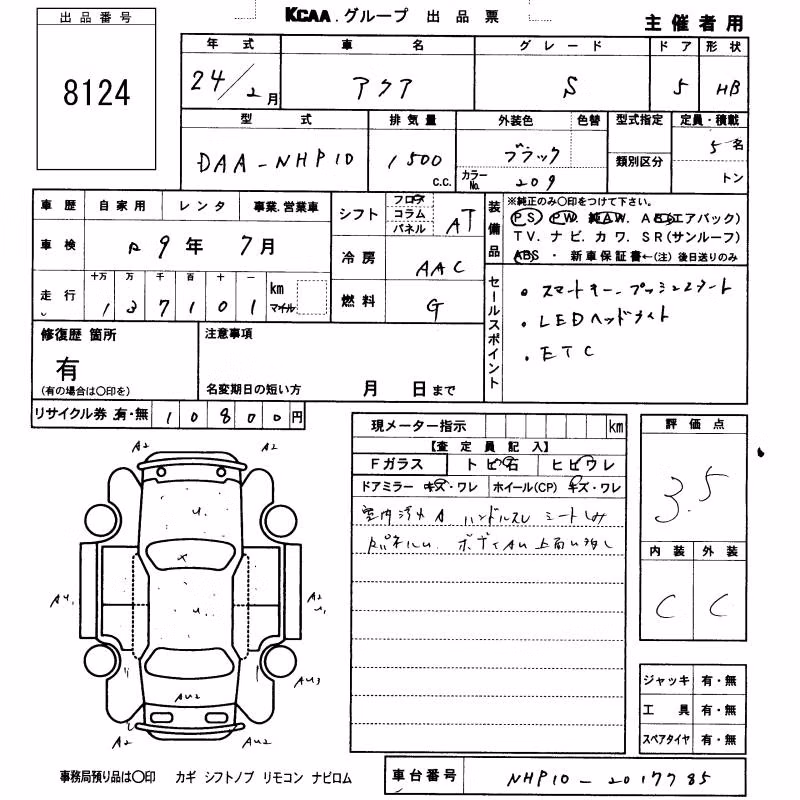 KCAA.グループ 出品票
主催者用
出品番号
8124
年式 車名 グレード ドア 形状
24/2月 アクア S 5 HB
型式 排気量 外装色 色替 型式指定 定員・積載
DAA-NHP10 1500 c.c. ブラック 5名
カラーNo. 209 類別区分 トン
車歴 自家用 レンタ 事業.営業車
車検 R9年 7月
走行 十万 万 千 百 十 一
1 3 7 1 0 1 km マイル
シフト フロア コラム パネル AT
冷房 AAC
燃料 G
装備品
※純正のみ〇印をつけて下さい。
PS. PW. 純AW. ABS(エアバック)
TV. ナビ. カワ. SR(サンルーフ)
ABS ・ 新車保証書←(注) 後日送りのみ
セールスポイント
・スマートキー.プッシュスタート
・LEDヘッドライト
・ETC
修復歴 箇所
有
(有の場合は〇印を)
注意事項
名変期日の短い方 月 日まで
リサイクル券 有・無 10800円
現メーター指示 km
【査定員記入】
Fガラス トビ石 ヒビワレ
ドアミラー キズ・ワレ ホイール(CP) キズ・ワレ
室内汚れA ハンドルスレ シートしみ
ボディAU
評価点
3.5
内装 外装
C C
A2 A2
U.
X
AU, U. A2 U,
AU3
AU2
A2 AU2
ジャッキ 有・無
工具 有・無
スペアタイヤ 有・無
事務局預り品は〇印 カギ シフトノブ リモコン ナビロム
車台番号 NHP10-2017785